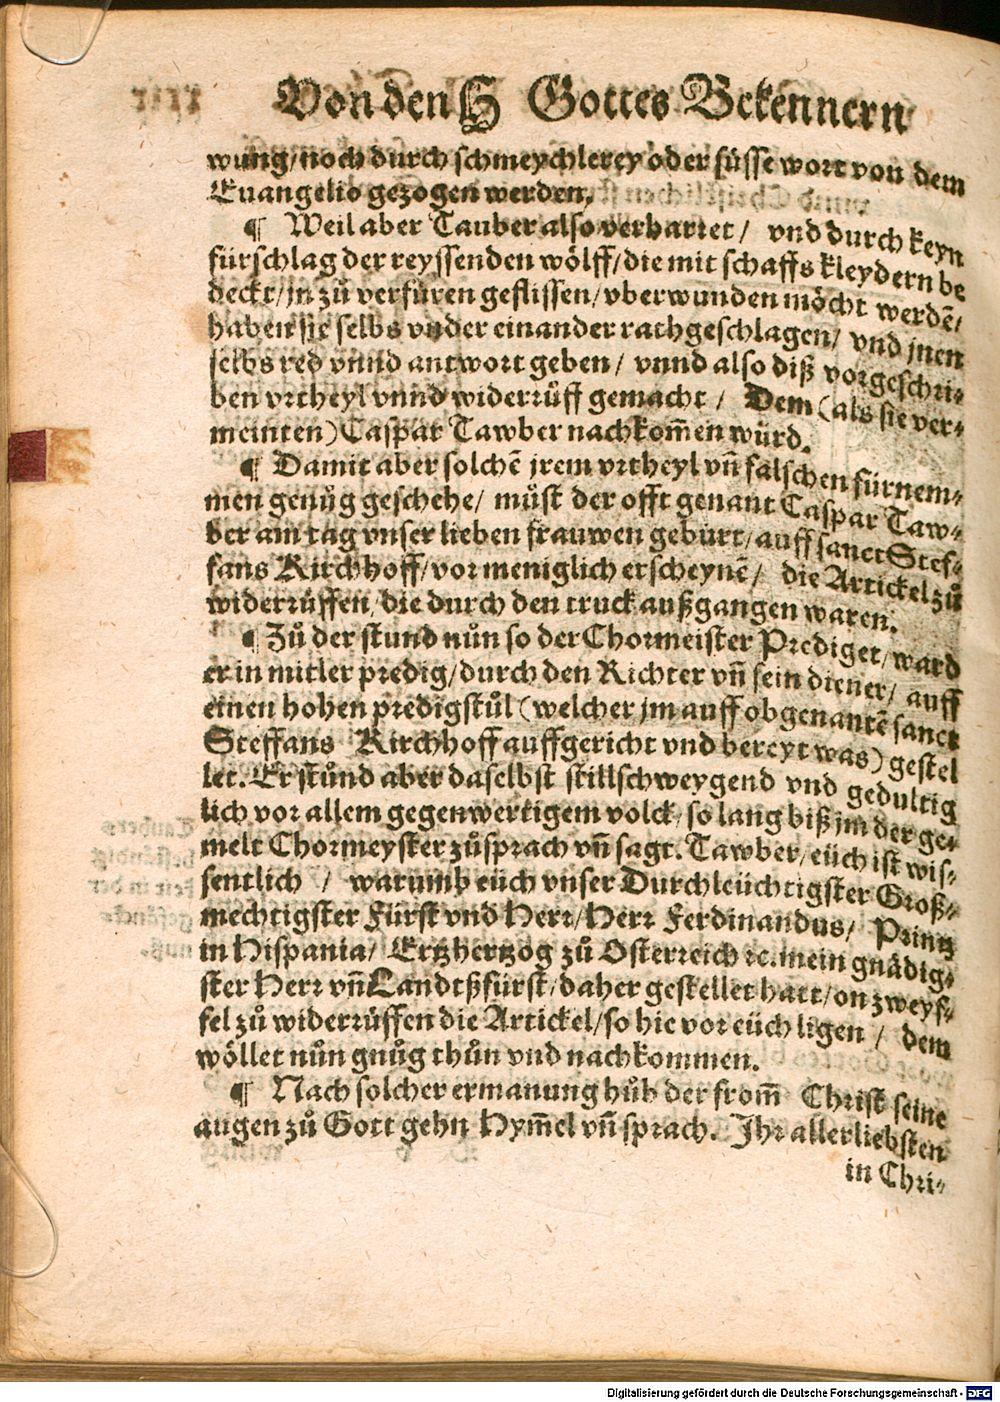 Von den H Gottes Bekennern
wung/ noch durch schmeychlerey oder süsse wort von dem
Euangelio gezogen werden,
¶ Weil aber Tauber also verhartet/ vnd durch keyn
fürschlag der reyssenden wölff/ die mit schaffs kleydern be
deckt/ jn zů verfüren geflissen/ vberwunden möcht werdē/
haben sie selbs vnder einander rathgeschlagen/ vnd jnen
selbs red vnnd antwort geben/ vnnd also diß vorgeschri⸗
ben vrtheyl vnnd widerrüff gemacht/ Dem (als sie ver⸗
meinten) Caspar Tawber nachkom̄en würd.
¶ Damit aber solchē jrem vrtheyl vn̄ falschen fürnem⸗
men genůg geschehe/ můst der offt genant Caspar Taw⸗
ber am tag vnser lieben frauwen geburt/ auff sanct Stef⸗
fans Kirchhoff/ vor meniglich erscheynē/ die Artickel zů
widerrüffen/ die durch den truck außgangen waren.
¶ Zů der stund nůn so der Chormeister Prediget/ ward
er in mitler predig/ durch den Richter vn̄ sein diener/ auff
einen hohen predigstůl (welcher jm auff obgenantē sanct
Steffans Kirchhoff auffgericht vnd bereyt was) gestel
let. Er stůnd aber daselbst stillschweygend vnd gedultig
lich vor allem gegenwertigem volck/ so lang biß jm der ge⸗
melt Chormeyster zůsprach vn̄ sagt. Tawber/ eüch ist wis⸗
sentlich / warumb eüch vnser Durchleüchtigster Groß⸗
mechtigster Fürst vnd Herr/ Herr Ferdinandus/ Printz
in Hispania/ Ertzhertzog zů Osterreich ꝛc. mein gnädig⸗
ster Herr vn̄ Landtßfürst/ daher gestellet hatt/ on zweyf⸗
fel zů widerrüffen die Artickel/ so hie vor eüch ligen / dem
wöllet nůn gnůg thůn vnd nachkommen.
¶ Nach solcher ermanung hůb der from̄ Christ seine
augen zů Gott gehn Hym̄el vn̄ sprach. Ihr allerliebsten
in Chri⸗
Digitalisierung gefördert durch die Deutsche Forschungsgemeinschaft - DFG